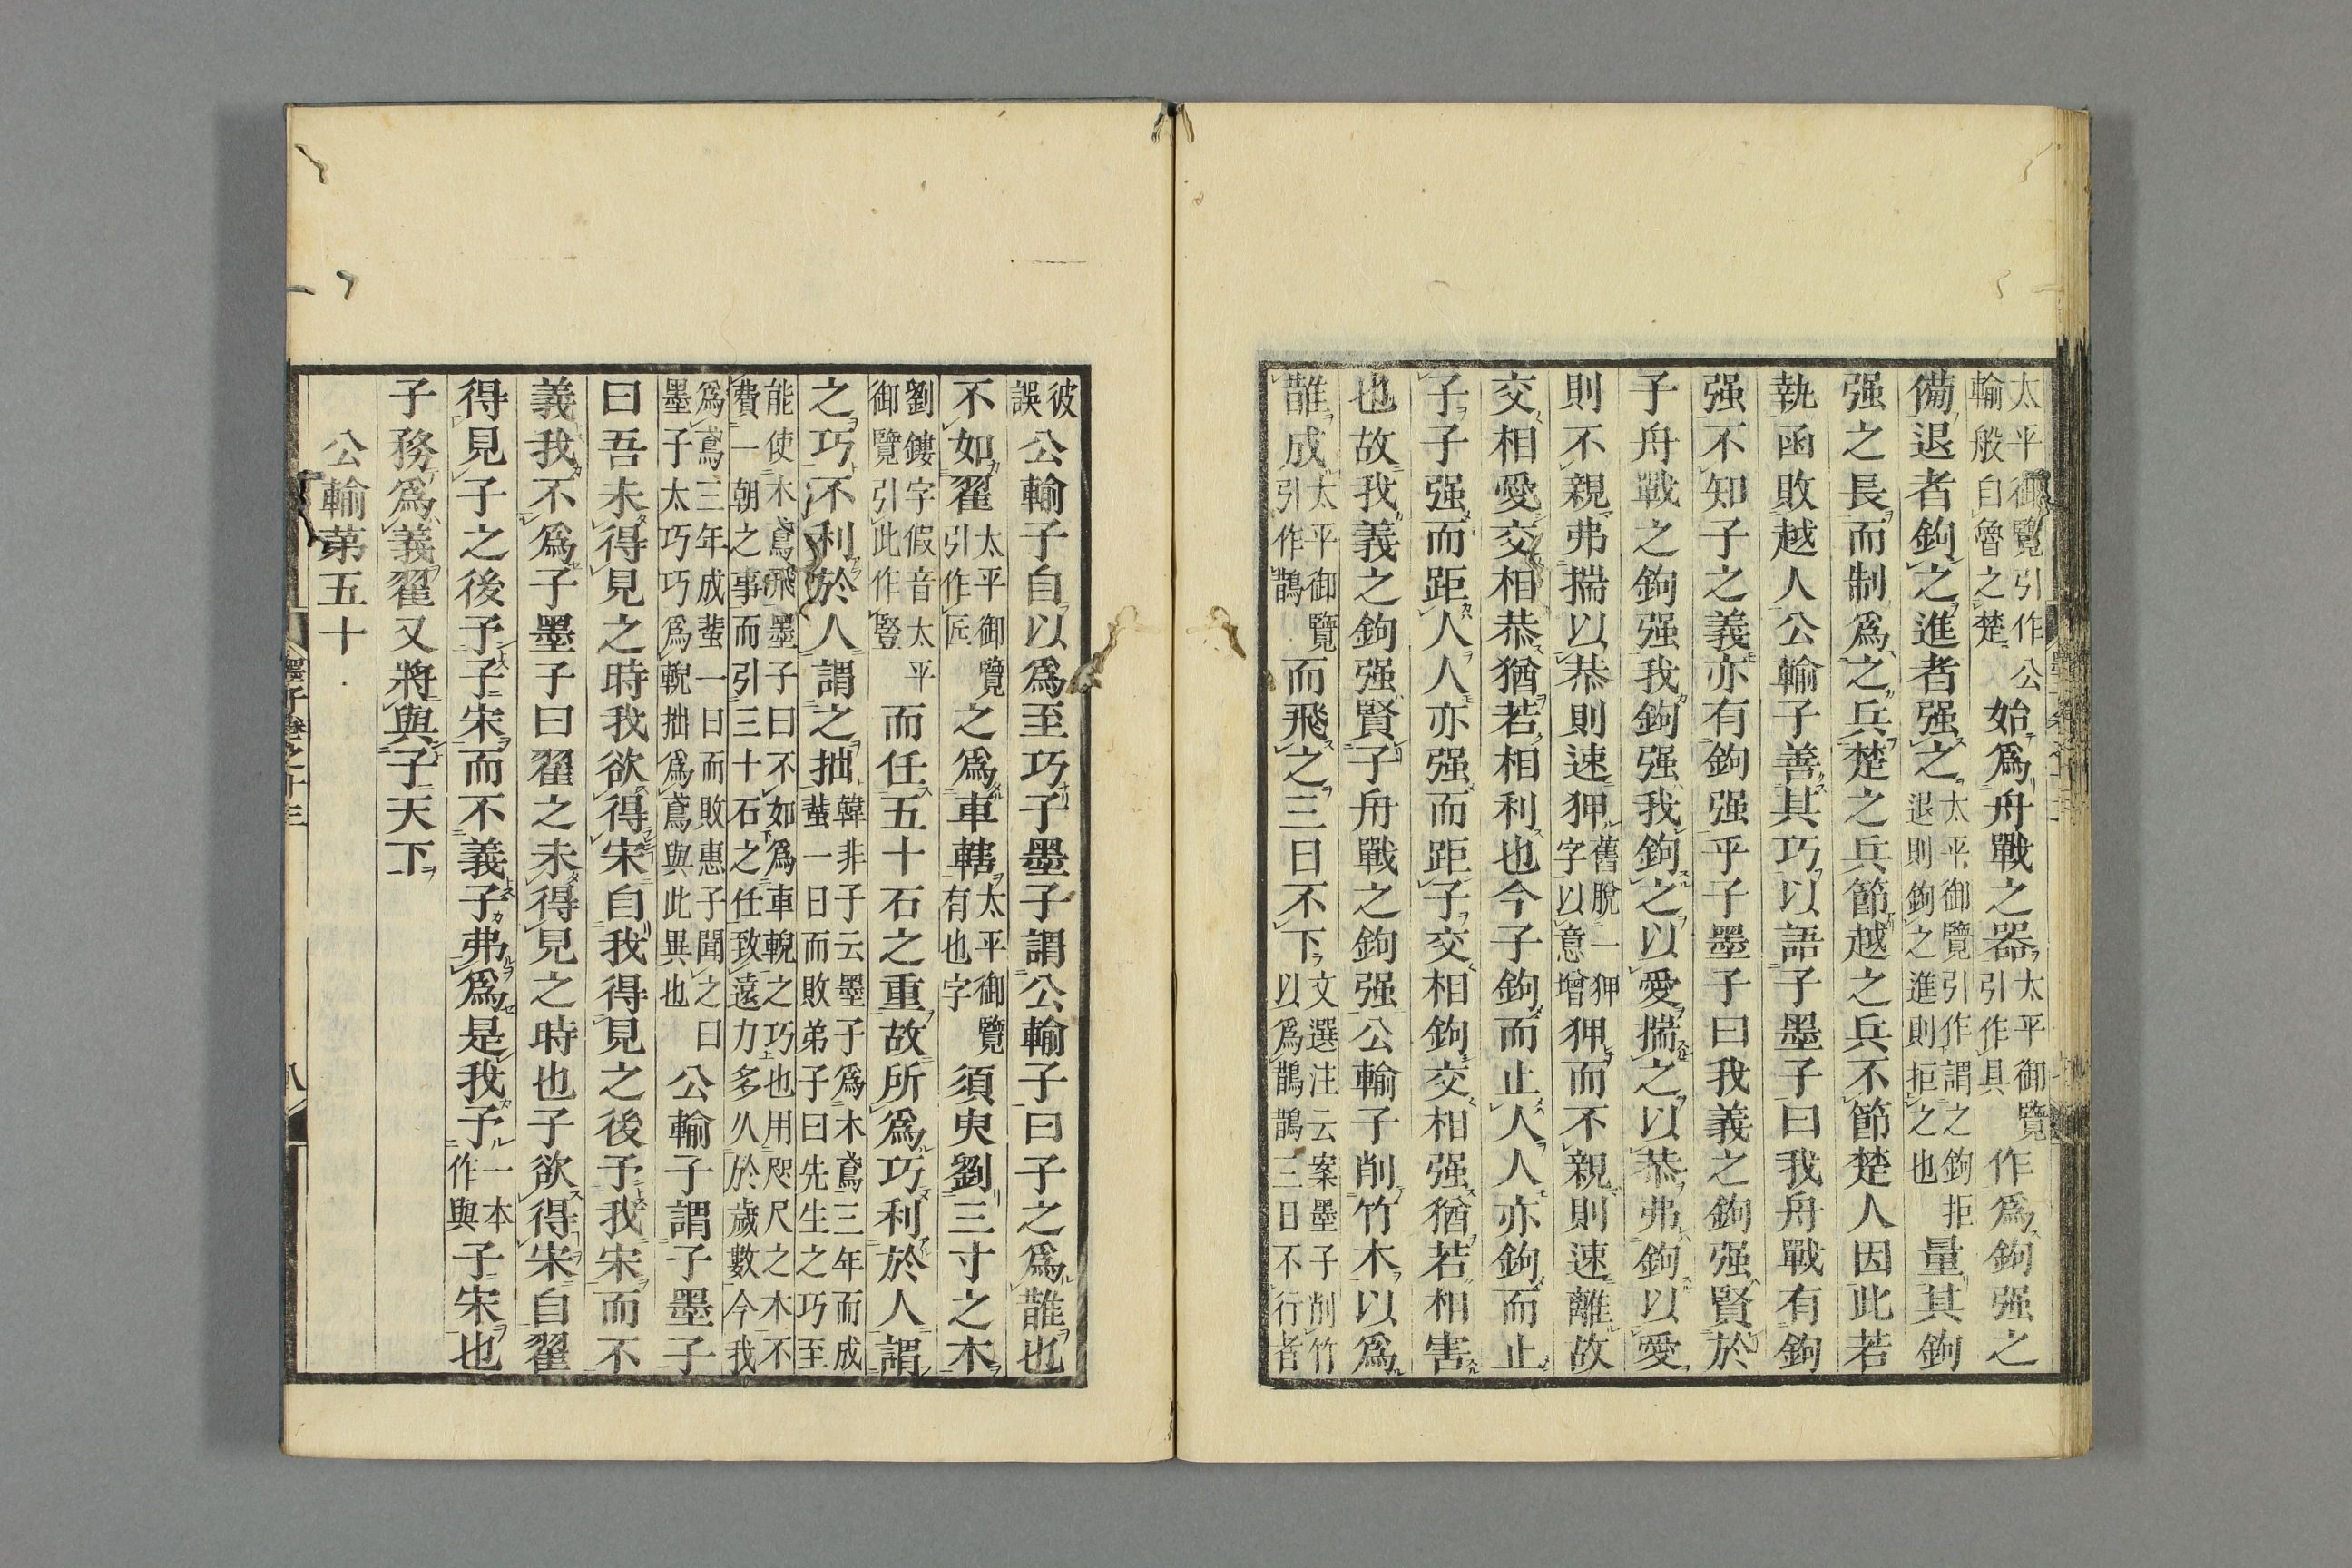 太平御覽引作公
輸般自魯之楚
始爲舟戰之器
太平御覽
引作具
作爲鉤强之
備退者鉤之進者强之
太平御覽引作謂之鉤拒
退則鉤之進則拒之也
量其鉤
强之長而制爲之兵楚之兵節越之兵不節楚人因此若
執函敗越人公輸子善其巧以語子墨子曰我舟戰有鉤
强不知子之義亦有鉤强乎子墨子曰我義之鉤强賢於
子舟戰之鉤强我鉤强我鉤之以愛揣之以恭弗鉤以愛
則不親弗揣以恭則速狎
舊脫一狎
字以意增
狎而不親則速離故
交相愛交相恭猶若相利也今子鉤而止人人亦鉤而止
子子强而距人人亦强而距子交相鉤交相强猶若相害
也故我義之鉤强賢子舟戰之鉤强公輸子削竹木以爲
誰成
太平御覽
引作鵲
而飛之三日不下
文選注云案墨子削竹
以爲鵲鵲三日不行者
彼
誤
公輸子自以爲至巧子墨子謂公輸子曰子之爲誰也
不如翟
太平御覽
引作匠
之爲車轄
太平御覽
有也字
須臾劉三寸之木
劉鏤字假音太平
御覽引此作豎
而任五十石之重故所爲巧利於人謂
之巧不利於人謂之拙
韓非子云墨子爲木鳶三年而成
蜚一日而敗弟子曰先生之巧至
能使木鳶飛墨子曰不如爲車輗之巧也用咫尺之木不
費一朝之事而引三十石之任致遠力多久於歲數今我
爲鳶三年成蜚一日而敗惠子聞之曰
墨子太巧巧爲輗拙爲鳶與此異也
公輸子謂子墨子
曰吾未得見之時我欲得宋自我得見之後予我宋而不
義我不爲子墨子曰翟之未得見之時也子欲得宋自翟
得見子之後予子宋而不義子弗爲是我予
一本
作與
子宋也
子務爲義翟又將與子天下
公輸第五十
墨子卷之十三
八